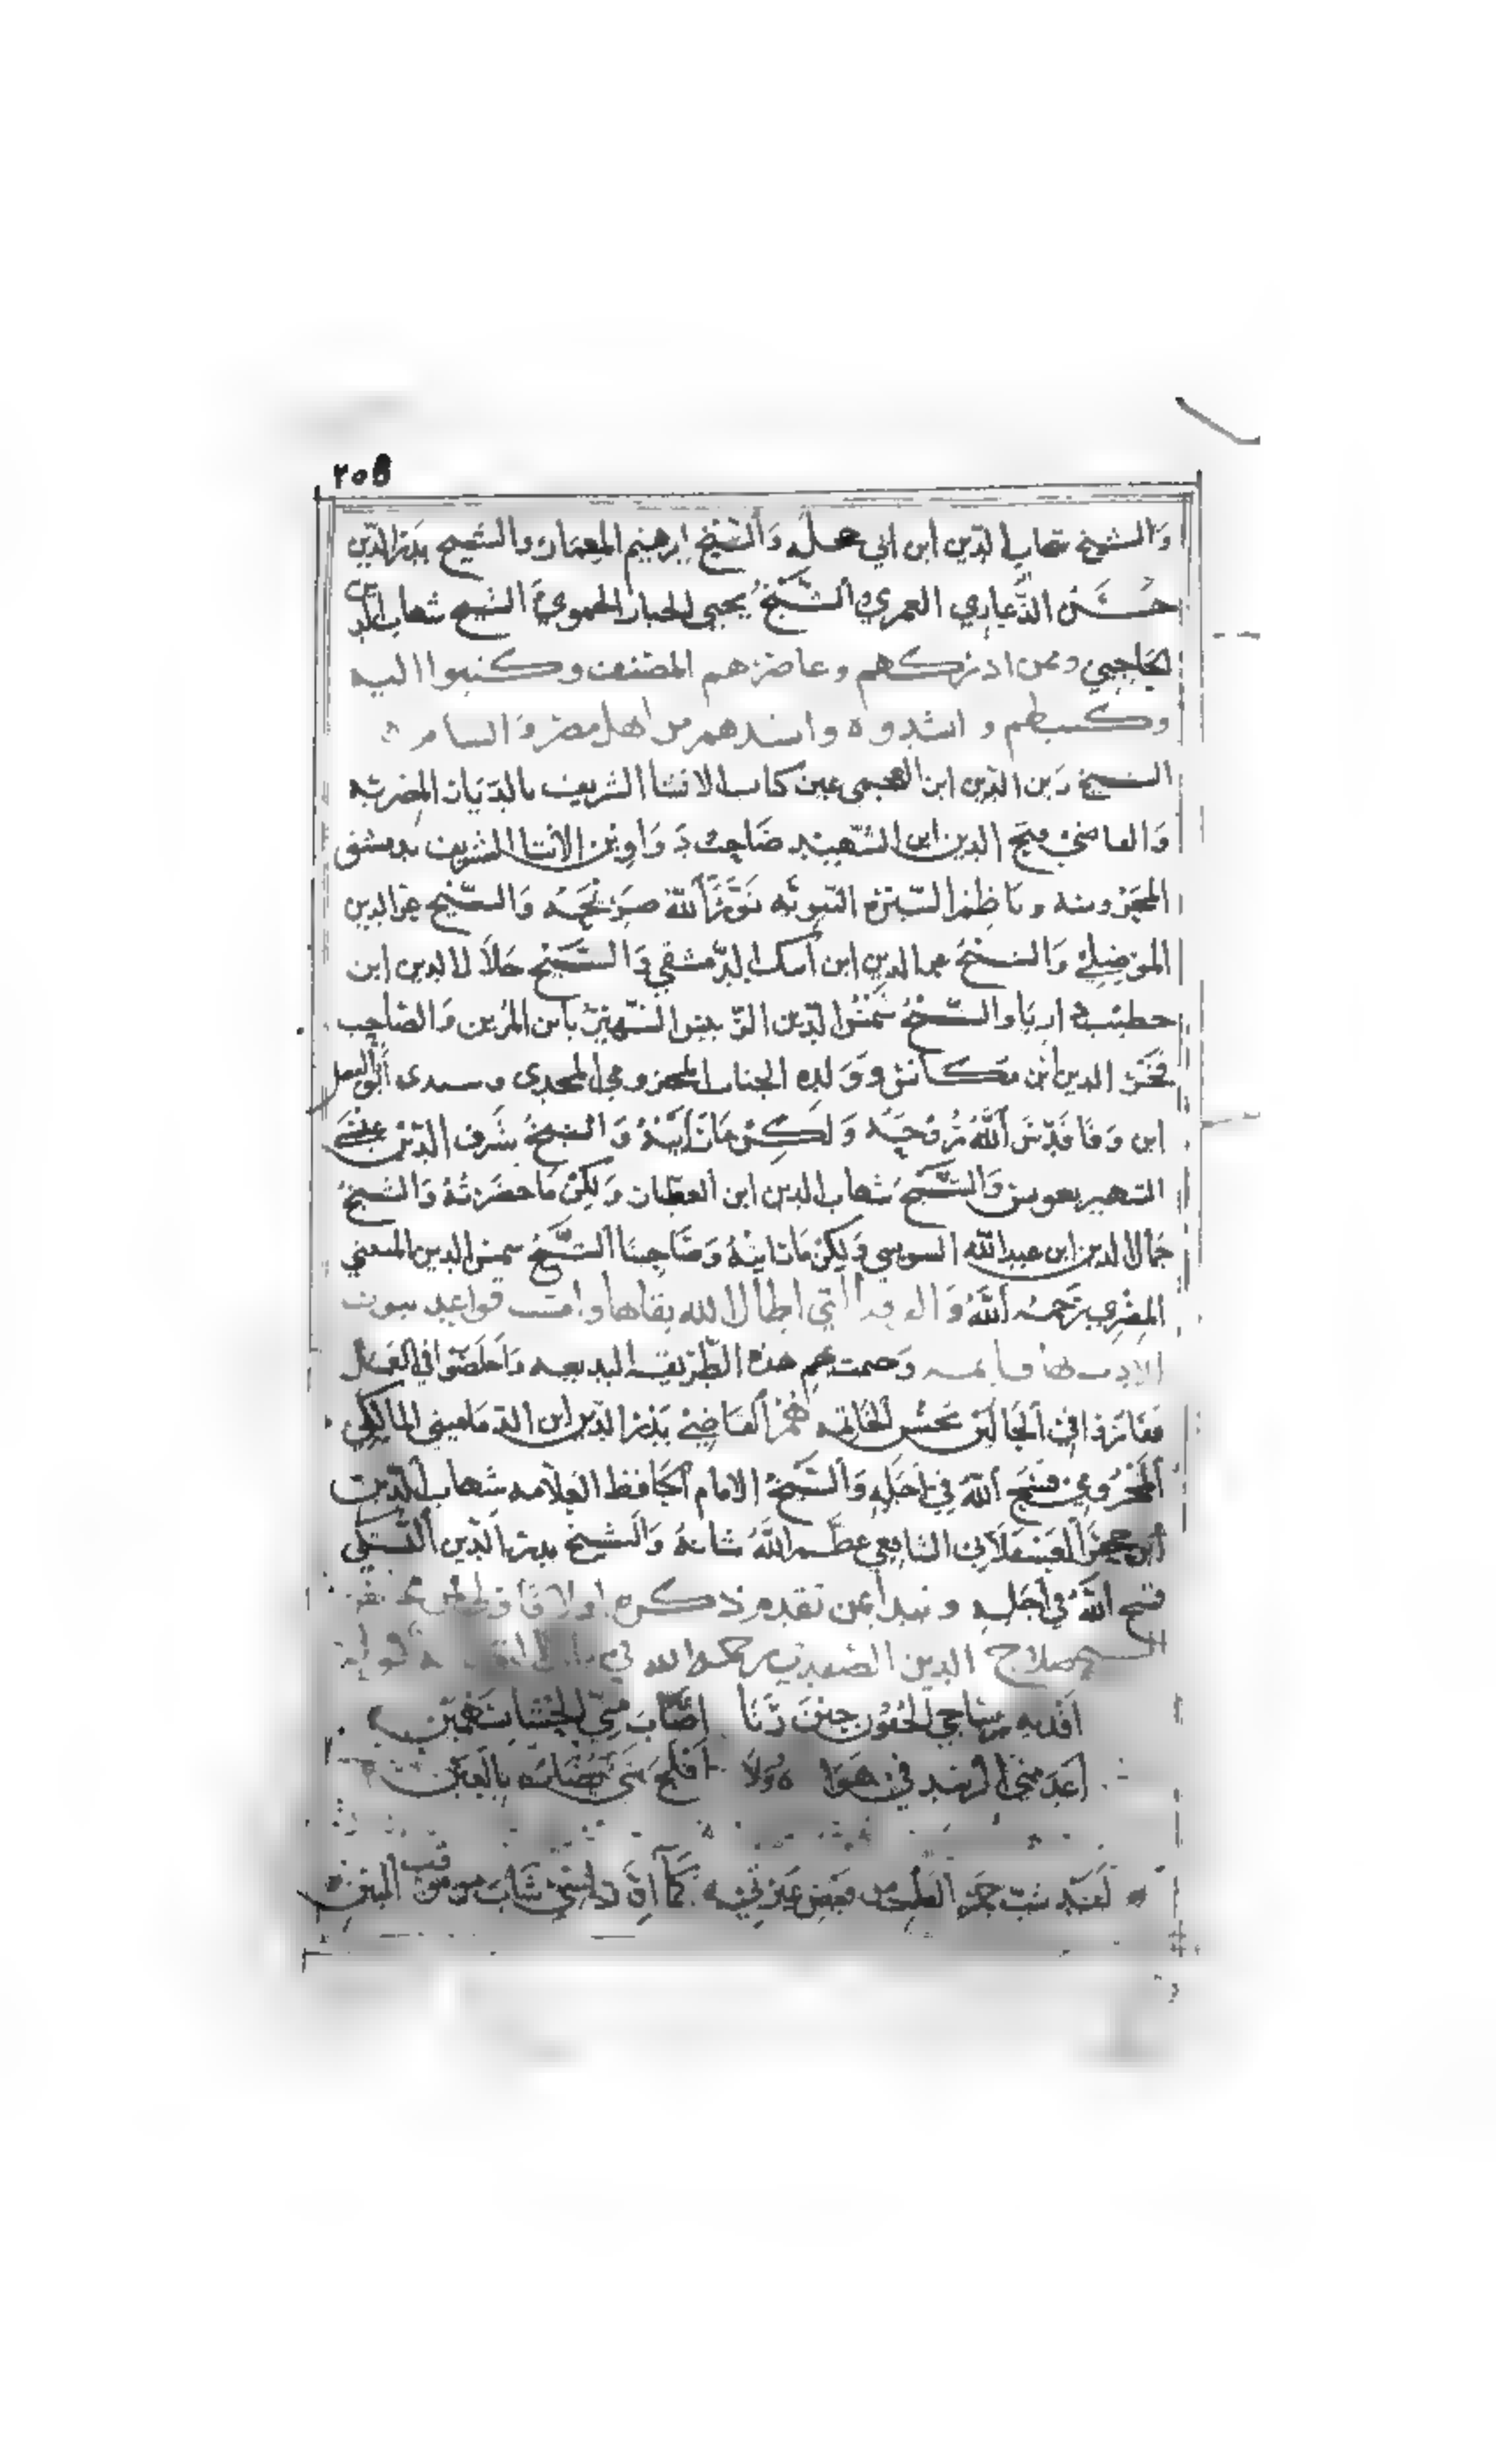 ٢٥٥
والشيخ شهاب الدين ابن ابي حجله والشيخ ابرهيم المعمار والشيخ بدر الدين
حسن الزغاري العمري الشيخ يحيى الخباز الحموي الشيخ شهاب الدين
الحاجبي ومن ادركهم وعاصرهم المصنف وكتبوا اليه
وكتب لهم وانشدوه وانشدهم من اهل مصر والشام
الشيخ زين الدين ابن العجمي عين كتاب الانشا الشريف بالديار المصريه
والقاضي فتح الدين ابن الشهيد صاحب دواوين الانشا الشريف بدمشق
المحروسه وناظم السيرة النبويه نور الله ضريحه والشيخ عز الدين
الموصلي والشيخ الدين ابن الدمشقي والشيخ جلال الدين ابن
خطيب داريا والشيخ شمس الدين الشهير بابن المزين والصاحب
فخر الدين ابن مكانس وولده الجناب المخزومي المجدي وسيدي ابو الفضل
ابن وفا قدس الله روحه ولكن مات ابنه والشيخ شرف الدين عيسى
الشهير بعويس والشيخ شهاب الدين ابن العطار ولكن ما حضرته والشيخ
جمال الدين ابن عبد الله السوسي ولكن ما رايته وصاحبنا الشيخ شمس الدين
المصري رحمه الله التي اطال الله بقاها وقواعد بيوت
الادب بها وختمت بهم هذه الطريقه البديعه واخلصوا في العمل
ففازوا في الحالين بحسن الخاتمه هم القاضي بدر الدين ابن الدماميني المالكي
المخزومي فسح الله في اجله والشيخ الامام الحافظ العلامه شهاب الدين
ابن حجر العسقلاني الشافعي عظم الله شانه والشيخ بدر الدين البشتكي
فسح الله في اجله ونبدا بمن تقدم ذكره اولا
الشيخ صلاح الدين الصفدي رحمه الله في قوله
افديه ساجي الجفون حين رنا اصاب مني الحشا بسهمين
اعدمني الرشد في هواه ولا افلح شي يصاب بالعين
لقد شب جمر القلب من فيض عبرتي كما ان راسي شاب من موقف البين